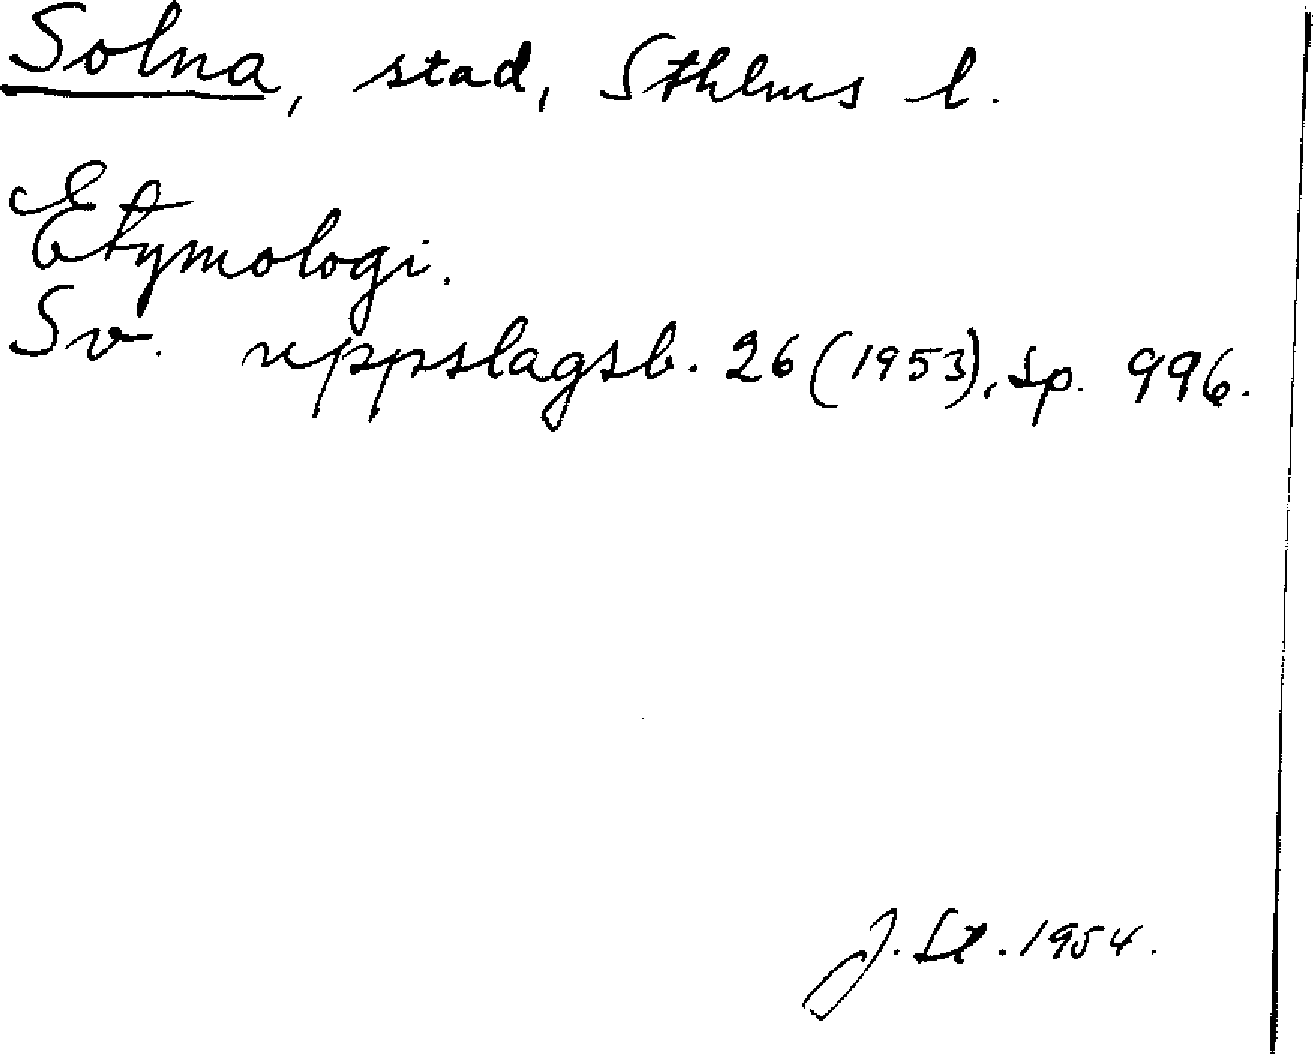 Solna, stad, Sthlms l.
Etymologi.
Sv. uppslagsb. 26 (1953), sp. 996.
J. St. 1954.